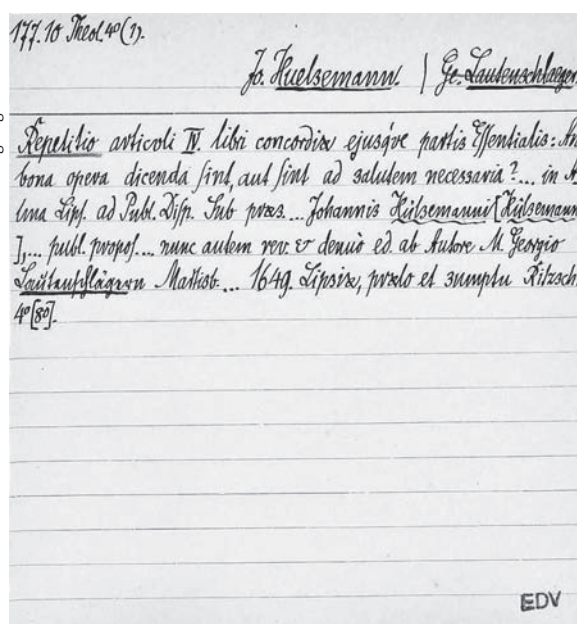 177.10 Theol. 4º (1).
Jo. Huelsemann. | Ge. Lautenschlaeger
Repetitio articoli IV. libri concordiæ ejusqve partis Essentialis: An
bona opera dicenda sint, aut sint ad salutem necessaria? ... in A
lma Lips. ad Publ. Disp. Sub præs. ... Johannis Hülsemanni [Hülsemann
], ... publ. propos. ... nunc autem rev. & denuò ed. ab Autore M. Georgio
Lautenschlägern ... 1649. Lipsiæ, prælo et sumptu Ritzsch.
4º [8º].
EDV